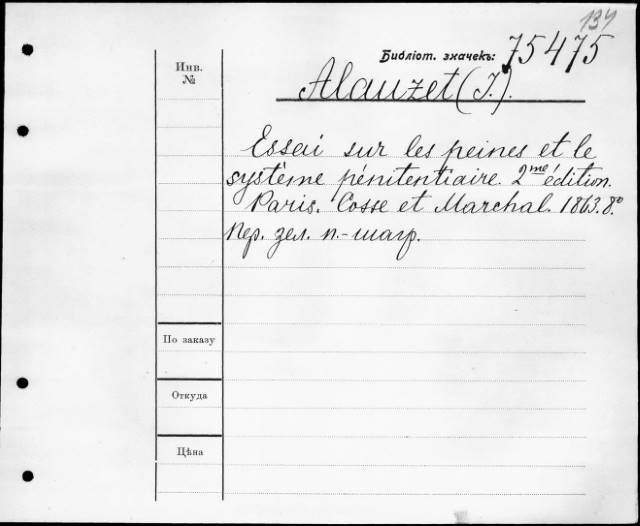 134
Библіот. значекъ: 75475
Инв.
№
Alauzet (J.).
Essai sur les peines et le
système pénitentiaire. 2me édition.
Paris. Cosse et Marchal. 1863. 8.º
Пер. зел. п.-шагр.
По заказу
Откуда
Цѣна